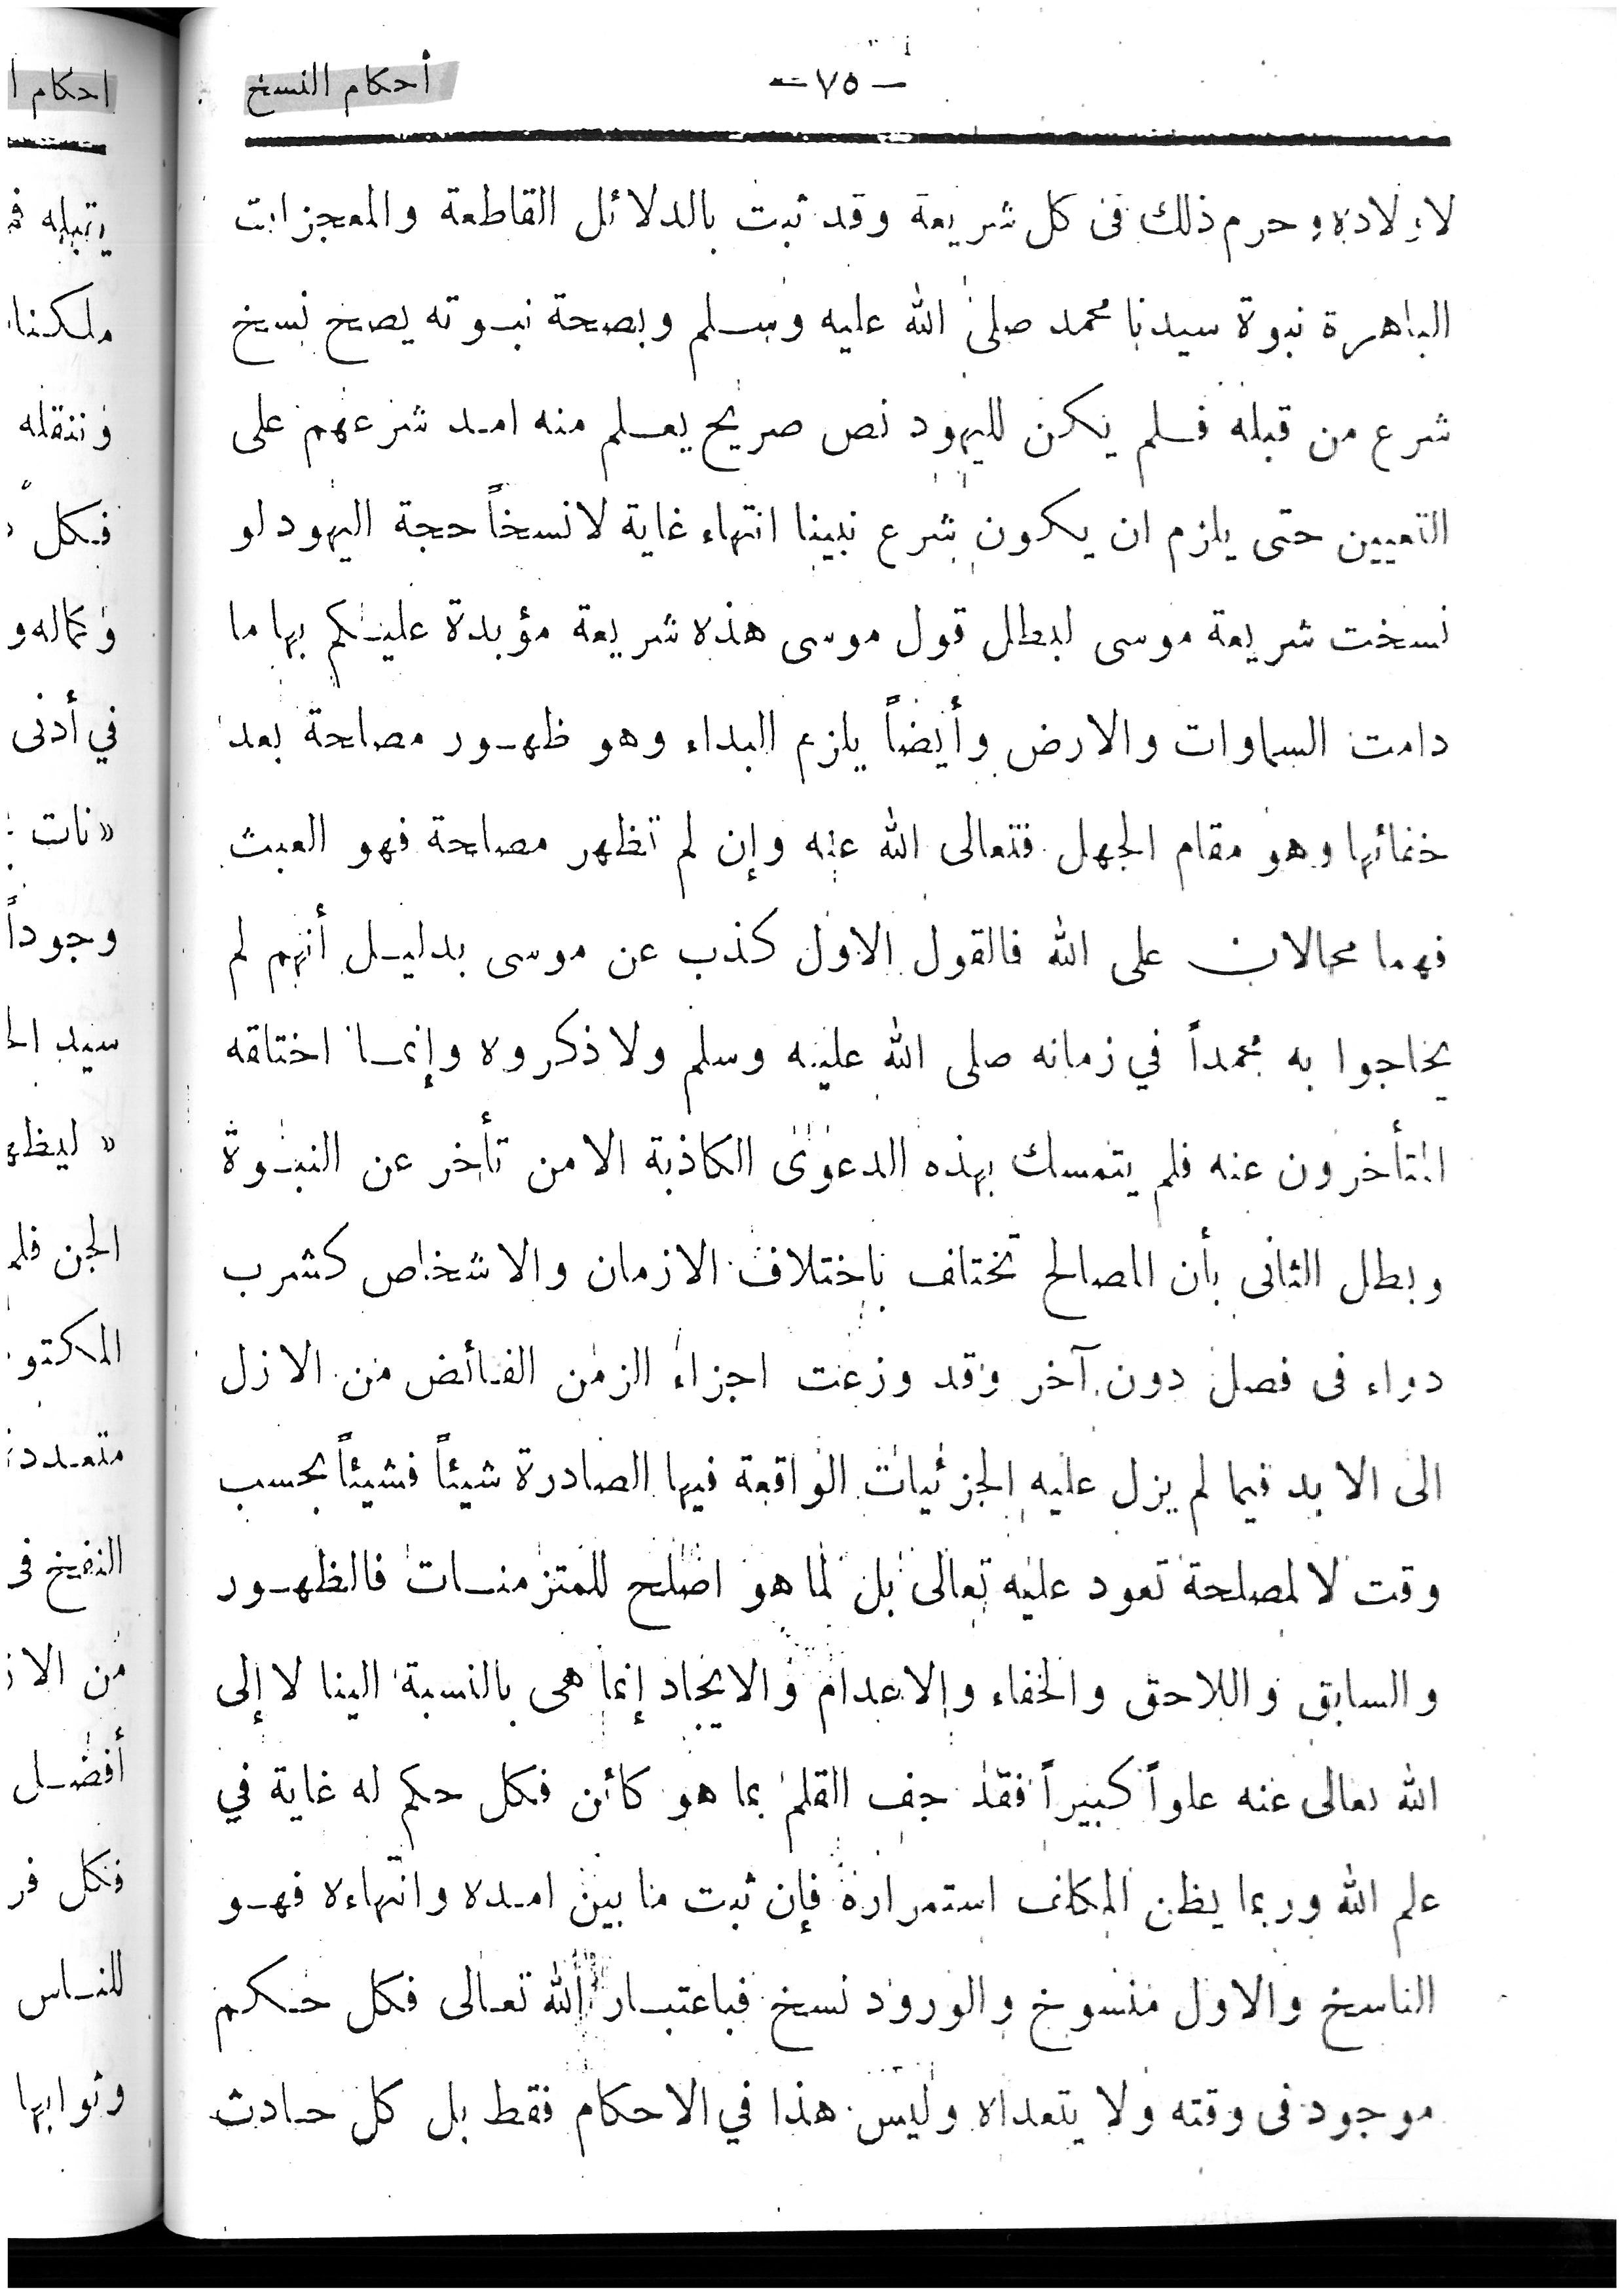 أحكام النسخ
— ٧٥ —
لاولاده وحرم ذلك فى كل شريعة وقد ثبت بالدلائل القاطعة والمعجزات
الباهرة نبوة سيدنا محمد صلى الله عليه وسلم وبصحة نبوته يصح نسخ
شرع من قبله فلم يكن لليهود نص صريح يعلم منه امد شرعهم على
التعيين حتى يلزم ان يكون شرع نبينا انتهاء غاية لا نسخاً حجة اليهود لو
نسخت شريعة موسى لبطل قول موسى هذه شريعة مؤبدة عليكم بها ما
دامت السماوات والارض وأيضاً يلزم البداء وهو ظهور مصلحة بعد
خفائها وهو مقام الجهل فتعالى الله عنه وإن لم تظهر مصلحة فهو العبث
فهما محالان على الله فالقول الاول كذب عن موسى بدليل أنهم لم
يحاجوا به محمداً في زمانه صلى الله عليه وسلم ولا ذكروه وإنما اختلقه
المتأخرون عنه فلم يتمسك بهذه الدعوى الكاذبة الا من تأخر عن النبوة
وبطل الثانى بأن المصالح تختلف باختلاف الازمان والاشخاص كشرب
دواء فى فصل دون آخر وقد وزعت اجزاء الزمن الفائض من الازل
الى الابد فيما لم يزل عليه الجزئيات الواقعة فيها الصادرة شيئاً فشيئاً بحسب
وقت لا لمصلحة تعود عليه تعالى بل لما هو اصلح للمتزمنات فالظهور
والسابق واللاحق والخفاء والاعدام والايجاد إنما هى بالنسبة الينا لا إلى
الله تعالى عنه علواً كبيراً فقد جف القلم بما هو كائن فكل حكم له غاية في
علم الله وربما يظن المكلف استمراره فإن ثبت ما بين امده وانتهاءه فهو
الناسخ والاول منسوخ والورود نسخ فباعتبار الله تعالى فكل حكم
موجود فى وقته ولا يتعداه وليس هذا في الاحكام فقط بل كل حادث
احكام ا
ملكنا
وننقله
فكل
وكماله و
في أدنى
« نات
وجوداً
سيد
«
الجن فلم
النفخ فى
من الا
أفضل
فكل
للناس
وثوابها